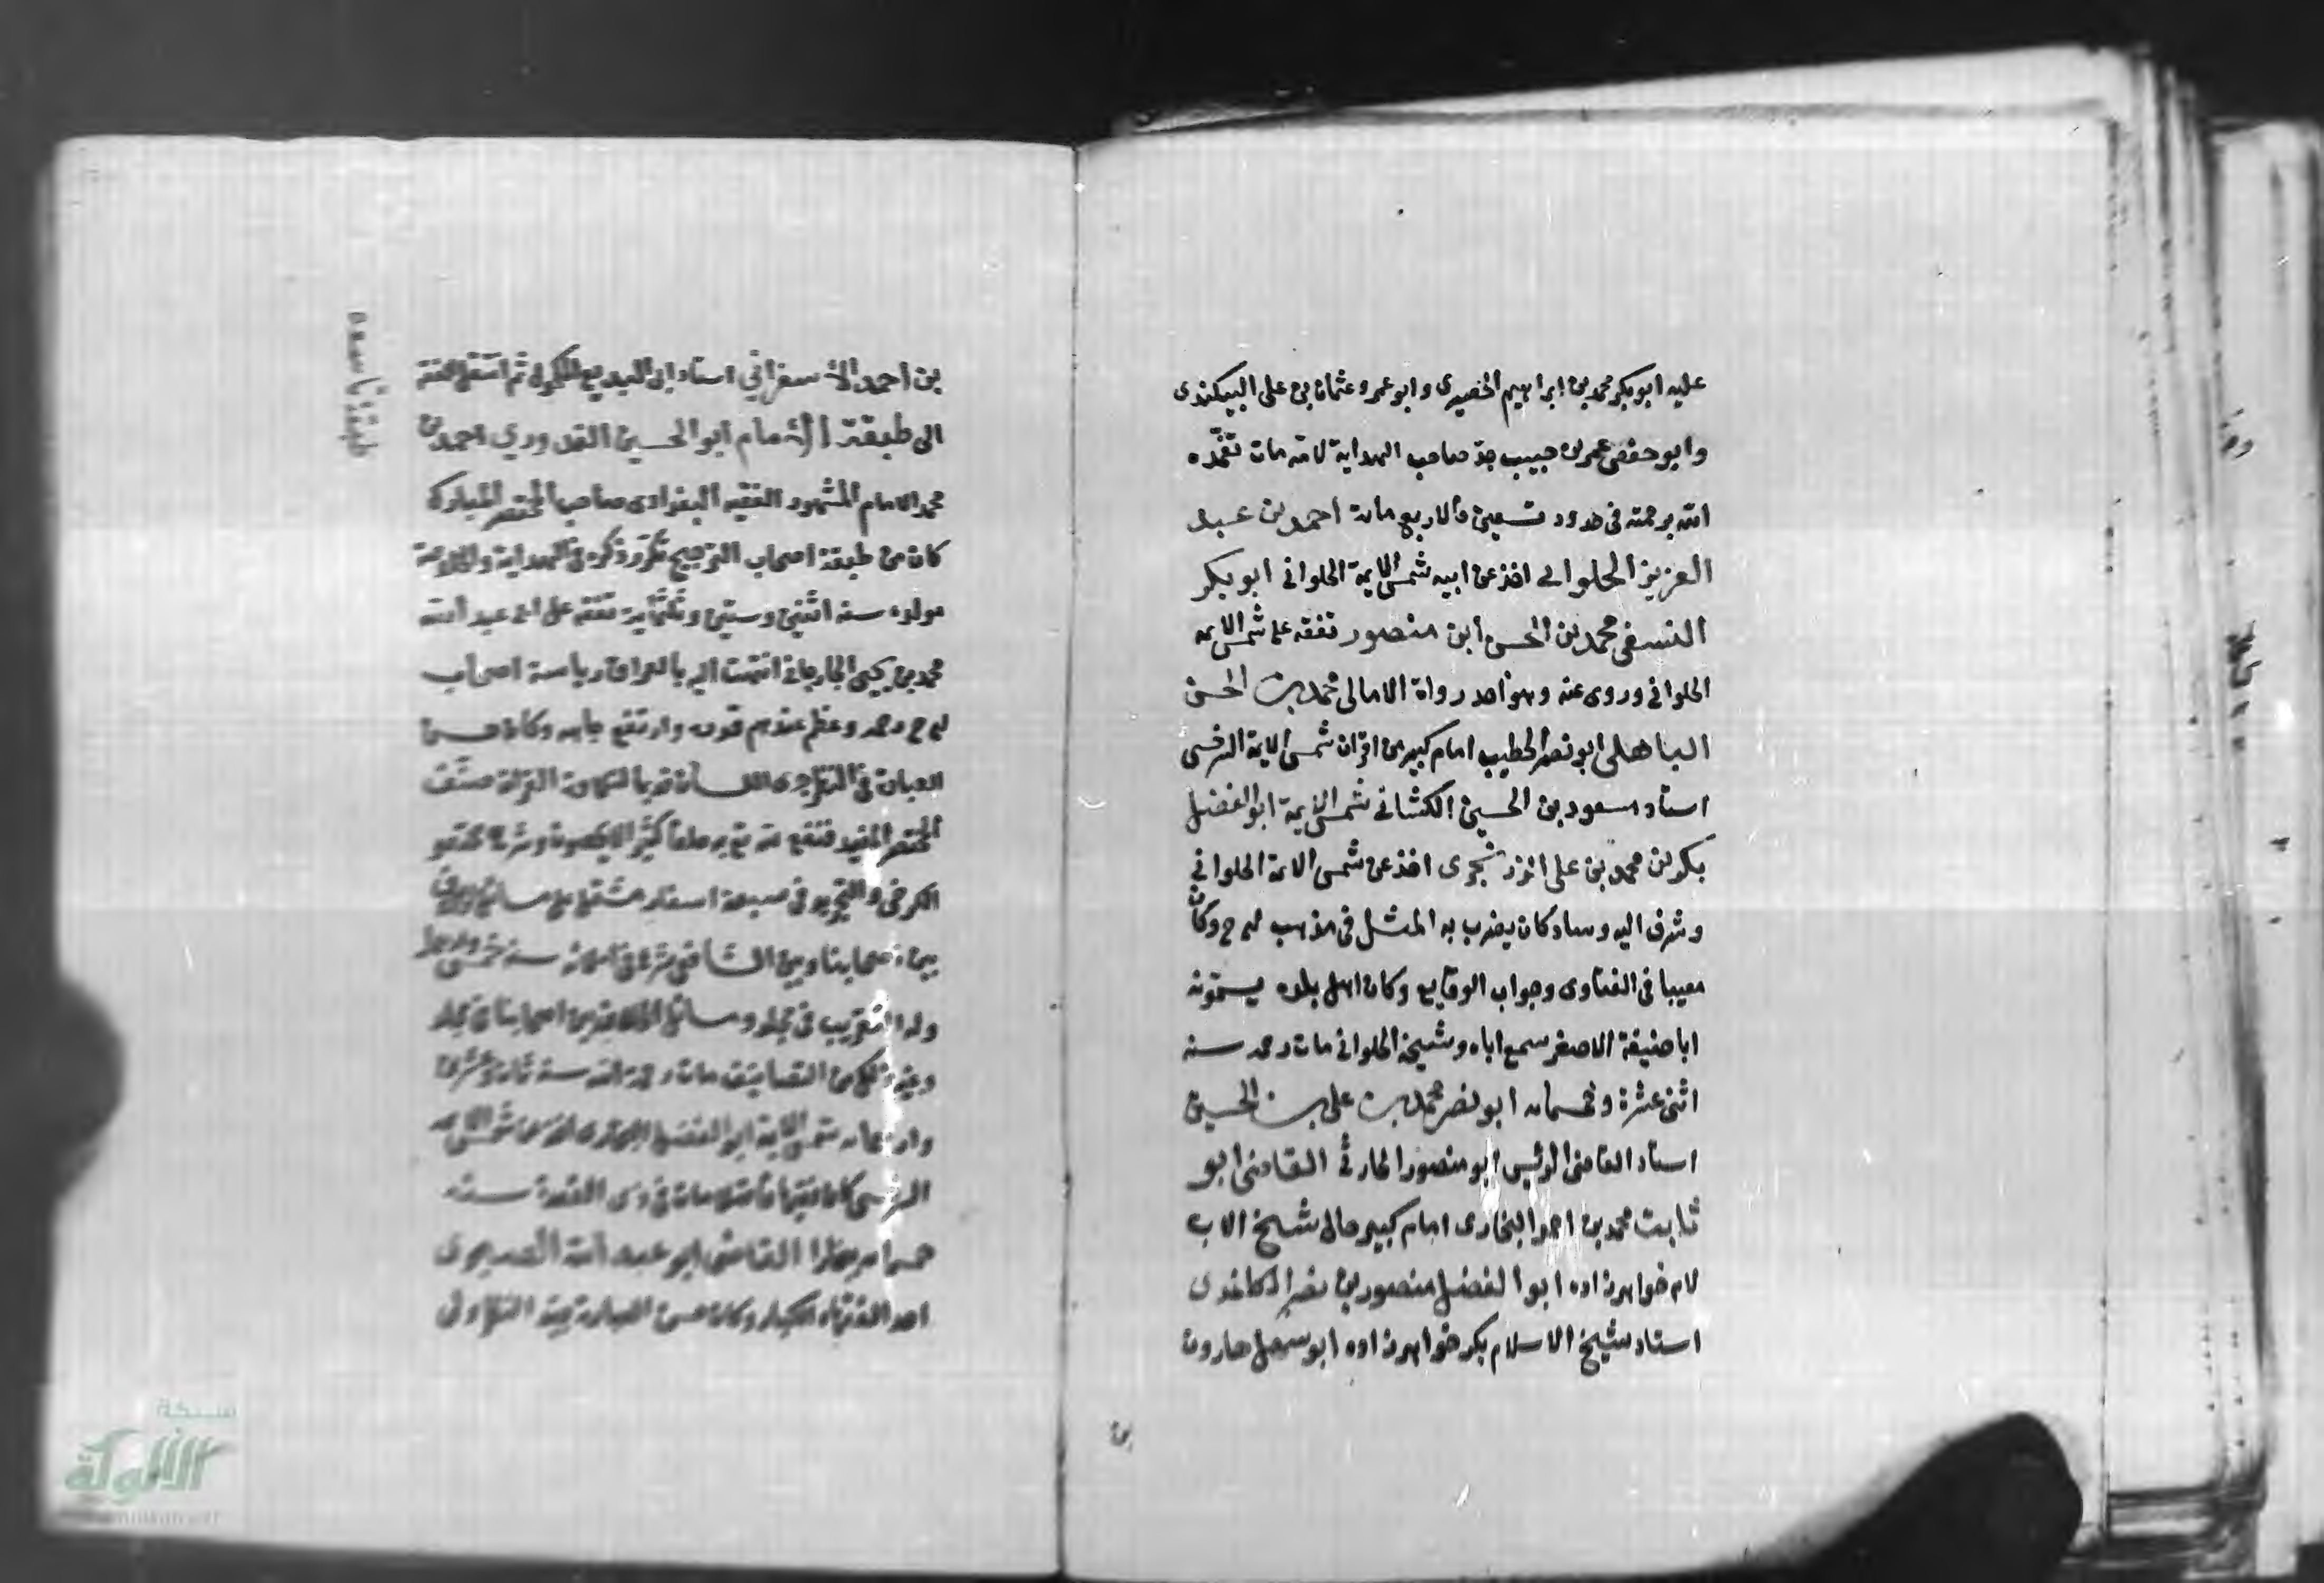 عليه ابو بكر محمد بن ابراهيم الحصيرى وابو عمرو عثمان بن على البيكندى
وابو حفص عمر بن حبيب جد صاحب الهداية لامه مات تغمده
الله برحمته فى حدود تسعين والاربع مائة احمد بن عبد
العزيز الحلوانى اخذ عن ابيه شمس الايمة الحلوانى ابو بكر
النسفى محمد بن الحسن ابن منصور تفقه على شمس الايمه
الحلوانى وروى عنه وهو احد رواة الامالى محمد بن الحسن
الباهلى ابو نصر الخطيب امام كبير من اقران شمس الايمة السرخسى
استاد مسعود بن الحسين الكشانى شمس الايمة ابو الفضل
بكر بن محمد بن على الزرنجرى اخذ عن شمس الايمة الحلوانى
وشرف اليه وساد كان يضرب به المثل فى مذهب لح ح وكان
مصيبا فى الفتاوى وجواب الوقايع وكان اهل بلده يسمونه
ابا حنيفة الاصغر سمع اباه وشيخه الحلوانى مات رحمه سنة
اثنى عشرة وخمسمائه ابو نصر محمد بن على بن الحسين
استاد القاضى الرئيس ابو منصور الحارثى القاضى ابو
ثابت محمد بن احمد البخارى امام كبير خال شيخ الاسلام
خواهرزاده ابو الفضل منصور بن نصر الكاغدى
استاد شيخ الاسلام بكر خواهرزاده ابو سهل هارون
بن
بن احمد الاسفرانى استاد ابى البديع ثم انتقل الفقه
الى طبقة الامام ابو الحسين القدورى احمد بن
محمد الامام المشهور الفقيه البغدادى صاحب المختصر المبارك
كان من طبقة اصحاب الترجيح تكرر ذكره فى الهداية والخلاصة
مولده سنه اثنين وستين وثلثماية تفقه على ابى عبد الله
محمد بن يحيى الجرجانى انتهت اليه بالعراق رياسة اصحاب
لح ح رحمه وعظم عندهم قدره وارتفع جاهه وكان حسن
العبارة فى النظر صنف
المختصر المفيد فنفع به خلقا كثيرا وشرح مختصر
الكرخى والتجريد فى سبعة اسفار مشتمل على مسائل
بين اصحابنا وبين الشافعى سنة خمس
وله التقريب فى مجلد ومسائل الخلاف بين اصحابنا فى مجلد
وغير ذلك من التصانيف مات رحمة الله سنه ثمان وعشرين
واربعمائه شمس الايمة ابو الفضل شمس الايمه
السرخسى كان فقيها فاضلا مات فى ذى القعدة سنه
القاضى ابو عبد الله الصيمرى
احد الفقهاء الكبار وكان حسن العبارة جيد النظر ولى
طبقة تاسعه